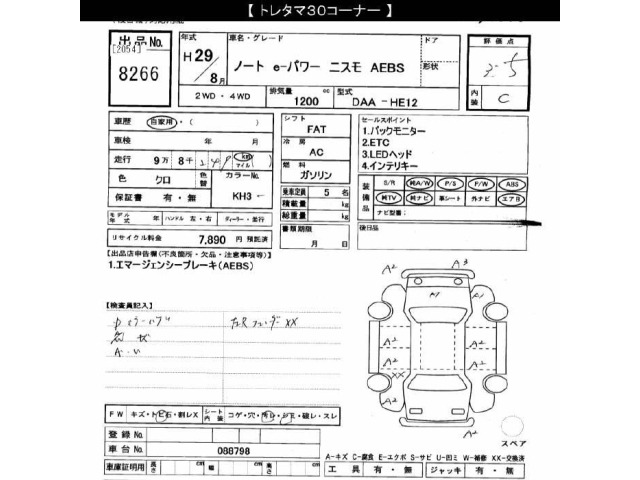 【 トレタマ30コーナー 】
出品No.
[2054]
8266
年式
H 29
8月
車名・グレード
ノート e-パワー ニスモ AEBS
ドア
形状
2WD・4WD
排気量
1200 cc
型式
DAA -HE12
評価点
3.5
内装
C
車歴 自家用・( )
車検 年 月
走行 9万 8千
色 クロ
色替
カラーNo.
KH3 -
保証書 有・無
シフト
FAT
冷房
AC
燃料
ガソリン
乗車定員 5 名
積載量 kg
総重量 kg
セールスポイント
1.バックモニター
2.ETC
3.LEDヘッド
4.インテリキー
装備品
S/R 純A/W P/S P/W ABS
純TV 純ナビ 革シート 外ナビ エアB
ナビ型番:
モデル年式 年 ハンドル 左・右 ディーラー・並行
リサイクル料金 7,890 円 預託済
書類期限
月 日
後日品
【出品店申告欄(不良箇所・欠品・注意事項等)】
1.エマージェンシーブレーキ(AEBS)
【検査員記入】
A2 A3
A1 A1
A2 A2
A2 A2
XX
A2 A2
A2
FW キズ・ヒ石・割レX
シート
内装
コゲ・穴・汚レ・シミ・破レ・スレ
登録No.
車台No. 088798
スペア
A-キズ C-腐食 E-エクボ S-サビ U-凹ミ W-補修 XX-交換済
車庫証明用 長さ cm 幅 cm 高さ cm
工具 有・無 ジャッキ 有・無